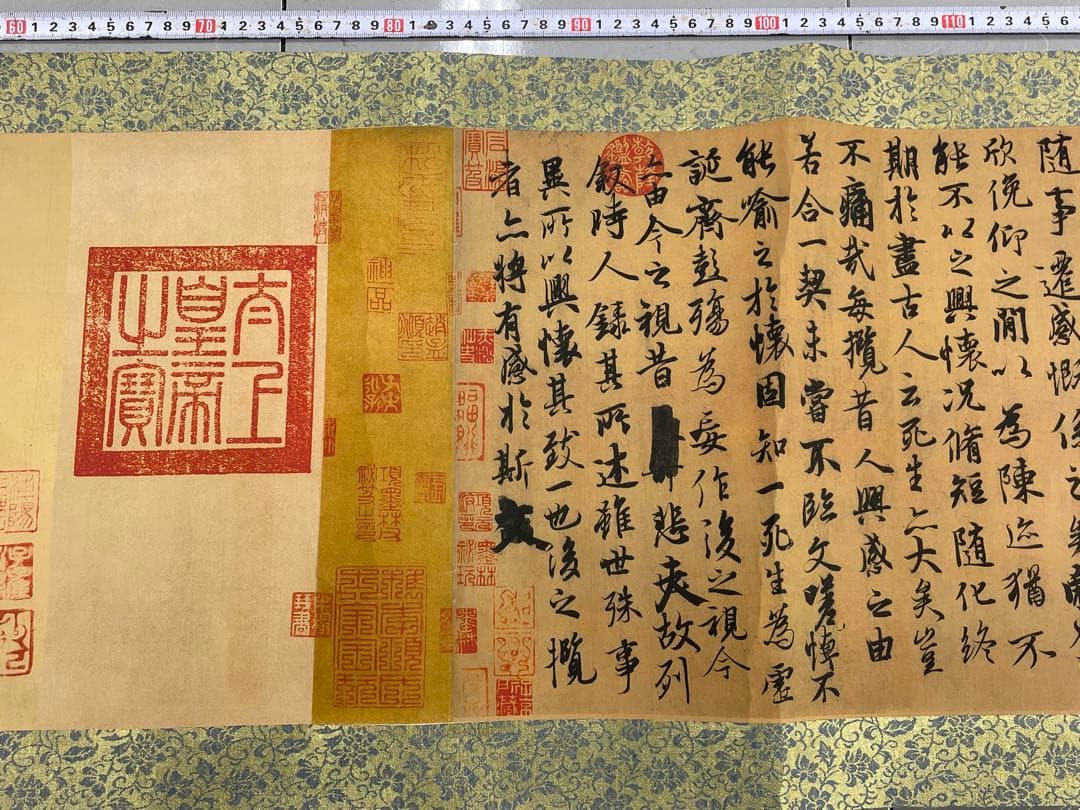 60 1 2 3 4 5 6 7 8 9 70 1 2 3 4 5 6 7 8 9 80 1 2 3 4 5 6 7 8 9 90 1 2 3 4 5 6 7 8 9 100 1 2 3 4 5 6 7 8 9 110 1 2 3 4 5 6
随事遷感慨係之矣
欣俛仰之閒以為陳迹猶不
能不以之興懷況脩短随化終
期於盡古人云死生亦大矣豈
不痛哉每攬昔人興感之由
若合一契未嘗不臨文嗟悼不
能喻之於懷固知一死生為虛
誕齊彭殤為妄作後之視今
亦由今之視昔悲夫故列
叙時人錄其所述雖世殊事
異所以興懷其致一也後之攬
者亦將有感於斯文
神品
太上
皇帝
之寶